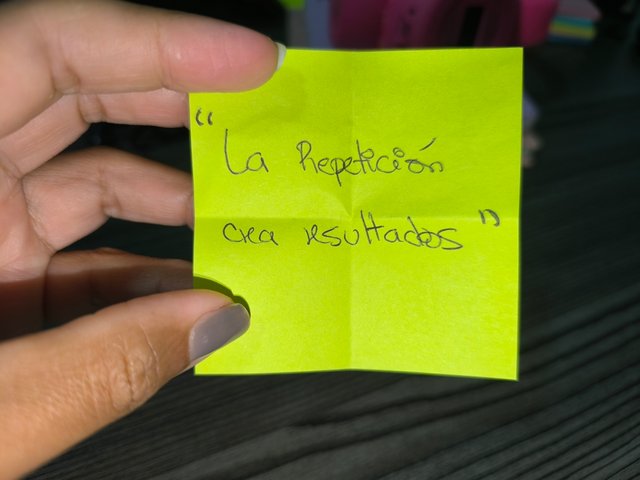 "La Repetición
crea resultados"